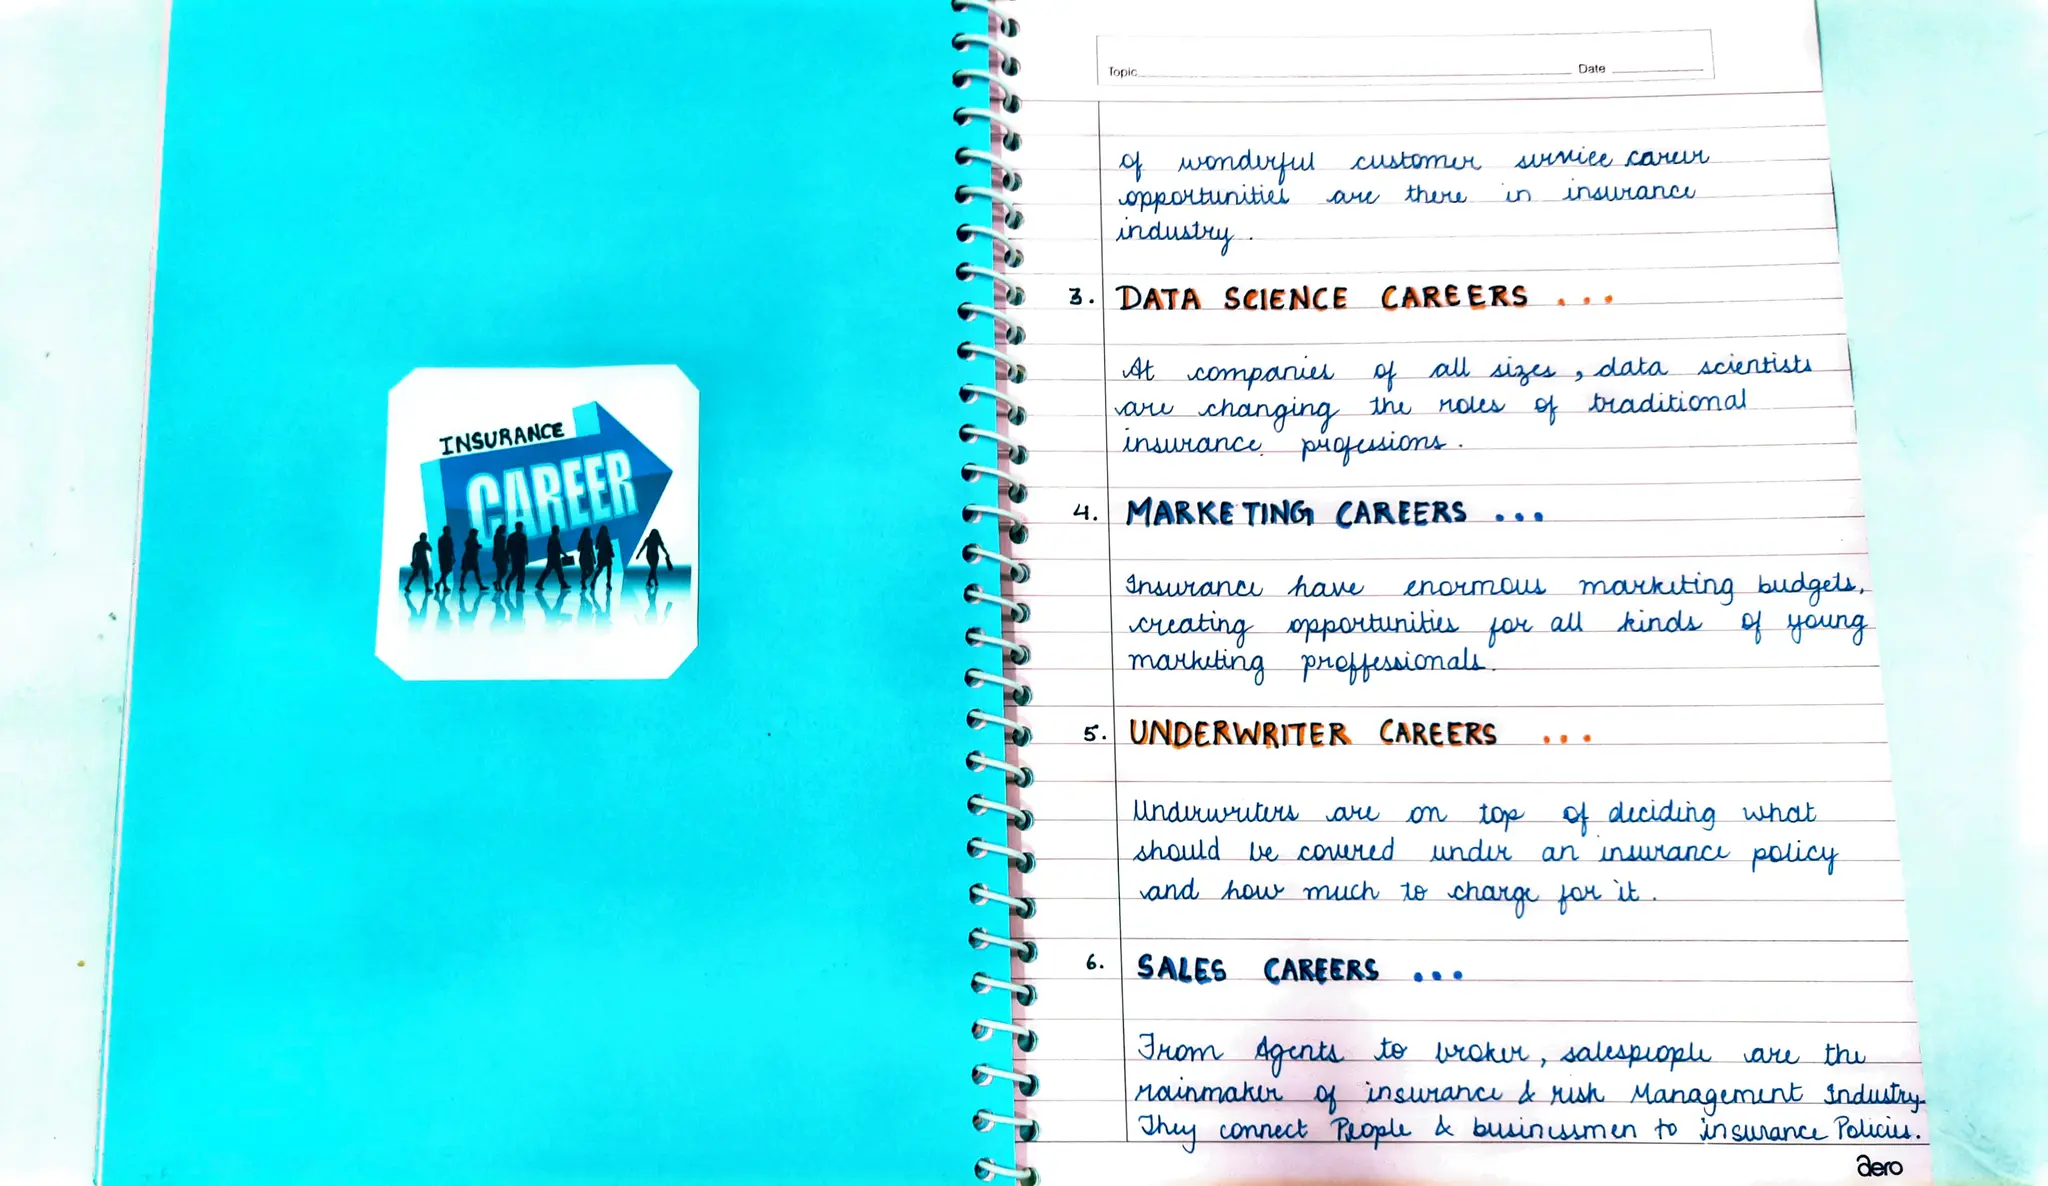 INSURANCE
CAREER
Topic
Date
of wonderful customer service career
opportunities are there in insurance
industry.
3. DATA SCIENCE CAREERS ...
At companies of all sizes, data scientists
are changing the roles of traditional
insurance professions.
4. MARKETING CAREERS ...
Insurance have enormous marketing budgets,
creating opportunities for all kinds of young
marketing proffessionals.
5. UNDERWRITER CAREERS ...
Underwriters are on top of deciding what
should be covered under an insurance policy
and how much to charge for it.
6. SALES CAREERS ...
From Agents to broker, salespeople are the
rainmaker of insurance & risk Management Industry
They connect People & businessmen to insurance Policies.
aero